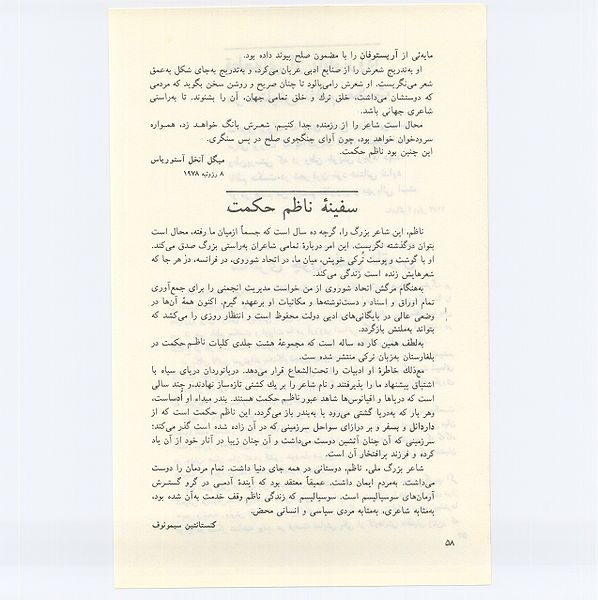 مایه‌ئی از آریستوفان را با مضمون صلح پیوند داده بود.
او به‌تدریج شعرش را از صنایع ادبی عریان می‌کرد، و به‌تدریج به‌جای شکل به‌عمق
شعر می‌نگریست. او شعرش را می‌پالود تا چنان صریح و روشن سخن بگوید که مردمی
که دوستشان می‌داشت، خلق ترك و خلق تمامی جهان، آن را بشنوند. تا به‌راستی
شاعری جهانی باشد.
محال است شاعر را از رزمنده جدا کنیم. شعرش بانگ خواهد زد، همواره
سرودخوان خواهد بود، چون آوای جنگجوی صلح در پس سنگری.
این چنین بود ناظم حکمت.
میگل آنخل آستوریاس
۸ ژوئیه ۱۹۷۸
سفینهٔ ناظم حکمت
ناظم، این شاعر بزرگ را، گرچه ده سال است که جسماً ازمیان ما رفته، محال است
بتوان درگذشته نگریست. این امر دربارهٔ تمامی شاعران به‌راستی بزرگ صدق می‌کند.
او با گوشت و پوست تُرکی خویش، میان ما، در اتحاد شوروی، در فرانسه، درُ هر جا که
شعرهایش زنده است زندگی می‌کند.
به‌هنگام مرگش اتحاد شوروی از من خواست مدیریت انجمنی را برای جمع‌آوری
تمام اوراق و اسناد و دست‌نوشته‌ها و مکاتبات او برعهده گیرم. اکنون همهٔ آن‌ها در
وضعی عالی در بایگانی‌های ادبی دولت محفوظ است و انتظار روزی را می‌کشد که
بتواند به‌ملتش بازگردد.
به‌لطف همین کار ده ساله است که مجموعهٔ هشت جلدی کلیات ناظم حکمت در
بلغارستان به‌زبان ترکی منتشر شده ست.
مع‌ذلك خاطرهٔ او ادبیات را تحت‌الشعاع قرار می‌دهد. دریانوردان دریای سیاه با
اشتیاق پیشنهاد ما را پذیرفتند و نام شاعر را بر یك کشتی تازه‌ساز نهادند، و چند سالی
است که دریاها و اقیانوس‌ها شاهد عبور ناظم حکمت هستند. بندر مبداء او اُدساست،
وهر بار که به‌دریا گشتی می‌رود یا به‌بندر باز می‌گردد، این ناظم حکمت است که از
داردانل و بسفر و بر درازای سواحل سرزمینی که در آن زاده شده است گذر می‌کند؛
سرزمینی که آن چنان آتشین دوست می‌داشت و آن چنان زیبا در آثار خود از آن یاد
کرده و فرزند پرافتخار آن است.
شاعر بزرگ ملی، ناظم، دوستانی در همه جای دنیا داشت. تمام مردمان را دوست
می‌داشت. به‌مردم ایمان داشت. عمیقاً معتقد بود که آیندهٔ آدمی در گرو گسترش
آرمان‌های سوسیالیسم است. سوسیالیسم که زندگی ناظم وقف خدمت به‌آن شده بود،
به‌مثابه شاعری، به‌مثابه مردی سیاسی و انسانی محض.
کنستانتین سیمونوف
۵۸